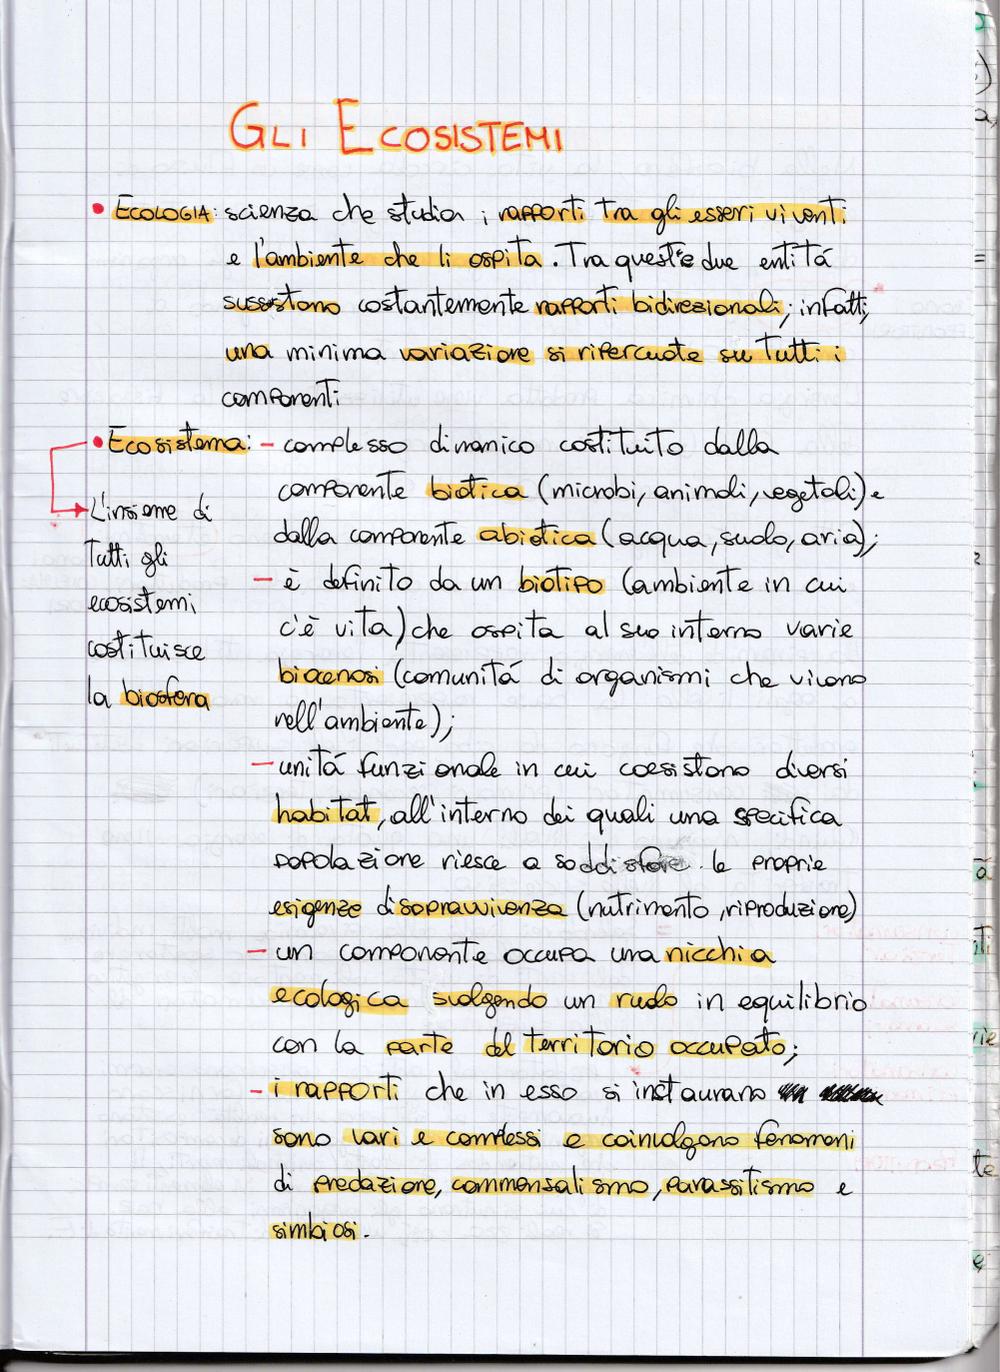 GLI ECOSISTEMI
• ECOLOGIA: scienza che studia i rapporti tra gli esseri viventi
e l'ambiente che li ospita. Tra queste due entitá
sussistono costantemente rapporti bidirezionali; infatti,
una minima variazione si ripercuote su tutti i
componenti
• Ecosistema: - complesso dinamico costituito dalla
componente biotica (microbi, animali, vegetali) e
dalla componente abiotica (acqua, suolo, aria);
- è definito da un biotipo (ambiente in cui
c'è vita) che ospita al suo interno varie
biocenosi (comunitá di organismi che vivono
nell'ambiente);
- unitá funzionale in cui coesistono diversi
habitat, all'interno dei quali una specifica
popolazione riesce a soddisfare le proprie
esigenze di sopravvivenza (nutrimento, riproduzione)
- un componente occupa una nicchia
ecologica svolgendo un ruolo in equilibrio
con la parte del territorio occupato;
- i rapporti che in esso si instaurano
sono vari e complessi e coinvolgono fenomeni
di predazione, commensalismo, parassitismo e
simbiosi.
L'insieme di
tutti gli
ecosistemi
costituisce
la biosfera